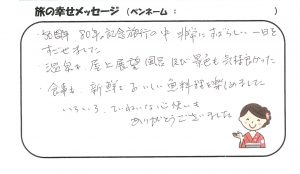 旅の幸せメッセージ (ペンネーム: )
80周年 80年記念旅行の中 非常にすばらしい一日を
すごせました
・温泉も 屋上展望風呂 及び景色も気持良かった
・食事も 新鮮でおいしい魚料理を楽しめました
いろいろ、ていねいな心使いも
ありがとうございました